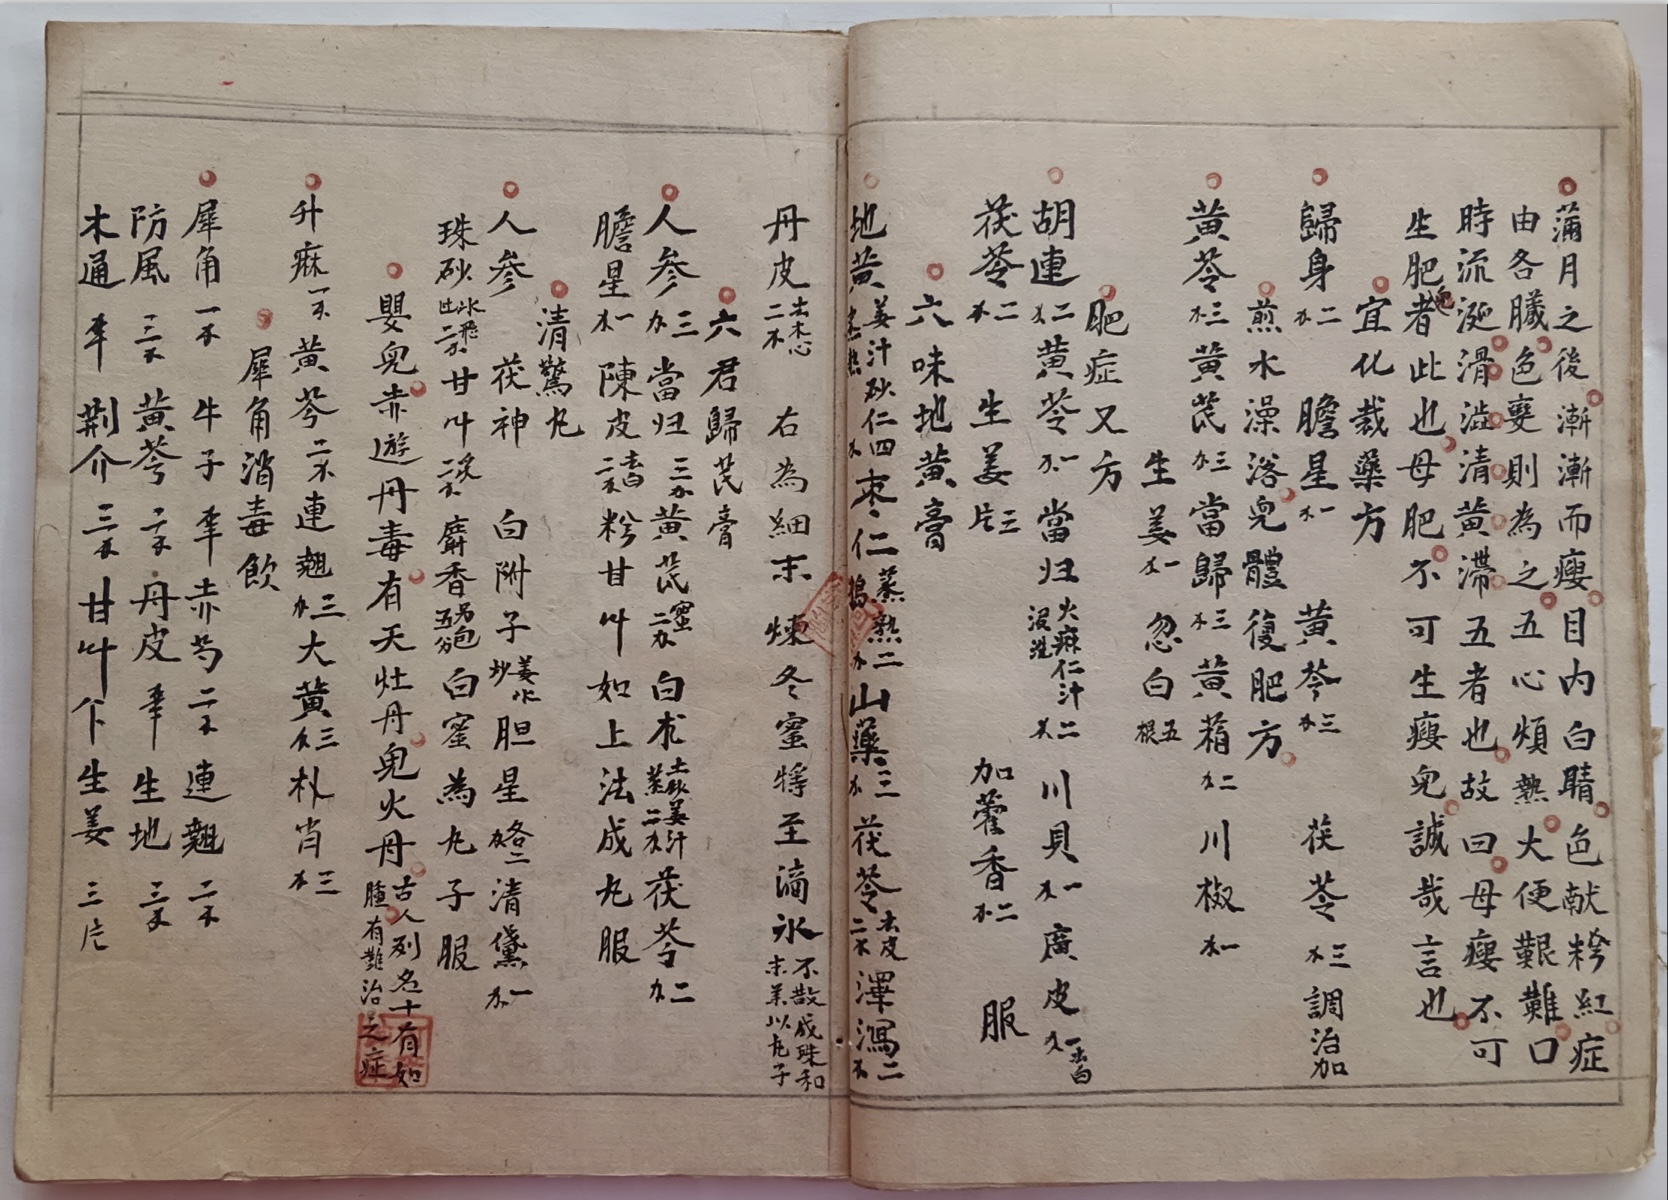 蒲月之後漸漸而瘦目内白睛色献粉紅症
由各臟色变則為之五心煩熱大便艱難口
時流涎滑澁清黄滯五者也故曰母瘦不可
生肥者此也母肥不可生瘦兒誠哉言也
宜化裁藥方
歸身二 膽星一 黄芩三 茯苓三調治加
煎水澡浴兒體復肥方
黄芩三黄芪三當歸三黄蓿二川椒一
生姜一 忽白五根
肥症又方
胡連二黄芩一當归火麻仁汁浸洗二川貝一廣皮一去白
茯苓二 生姜三片 加藿香二 服
六味地黄膏
地黄姜汁砂仁四枣仁蒸熟二山藥三茯苓去皮二澤瀉二
丹皮去木心二 右為細末煉冬蜜將至滴水不散成珠和末業以丸子
六君歸芪膏
人參三當归三黄芪蜜二白朮土蒸姜汁二茯苓二
膽星一陳皮去白二粉甘艸如上法成丸服
清驚丸
人參 茯神 白附子姜水炒胆星各二清黛一
珠砂水飛过二甘艸二麝香另包五分白蜜為丸子服
嬰兒赤遊丹毒有天灶丹兒火丹古人列名十有如腫有難治之症
升麻一黄芩二連翹三大黄三朴肖三
犀角消毒飲
犀角一牛子 赤芍二連翹二
防風三黄芩二丹皮 生地三
木通 荆介三甘艸 生姜三片